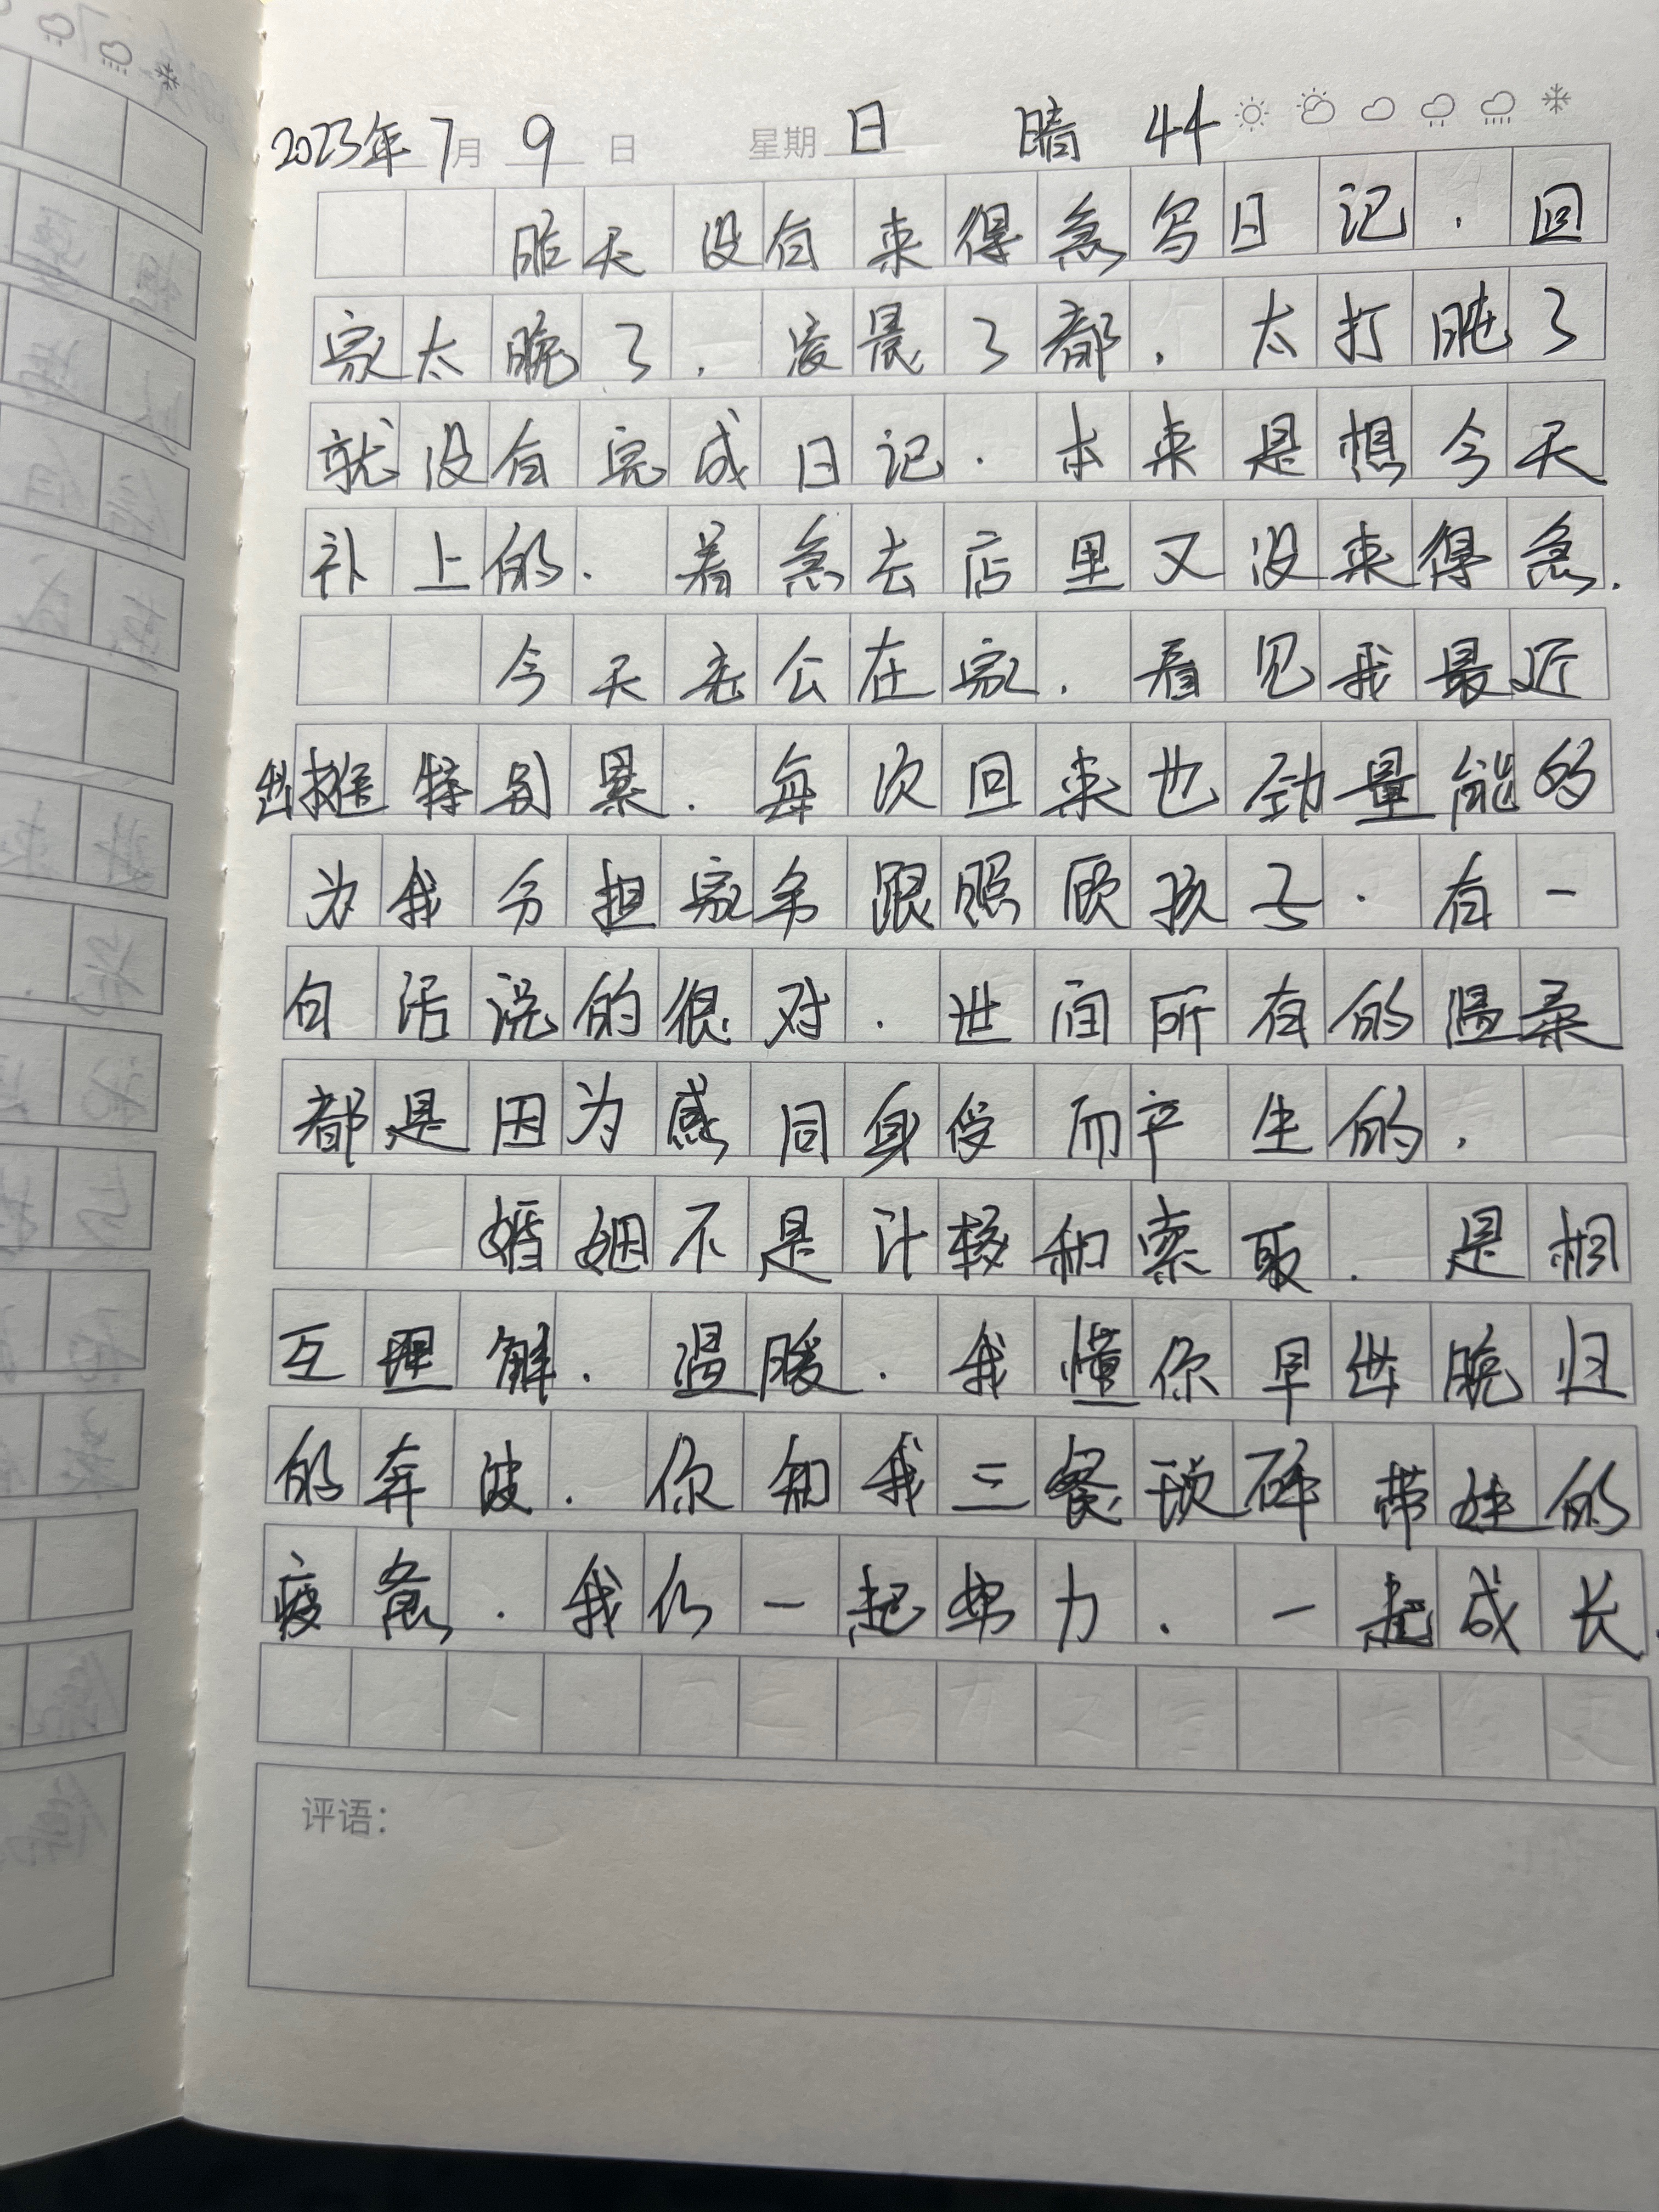 2023年7月9日 星期日 晴 44
昨天没有来得急写日记.回
家太晚了.凌晨了都.太打盹了
就没有完成日记.本来是想今天
补上的.着急去店里又没来得急.
今天老公在家.看见我最近
出摊特别累.每次回来也劲量能的
为我分担家务跟照顾孩子.有一
句话说的很对.世间所有的温柔
都是因为感同身受而产生的.
婚姻不是计较和索取.是相
互理解.温暖.我懂你早出晚归
的奔波.你知我三餐琐碎带娃的
疲惫.我们一起努力.一起成长.
评语: